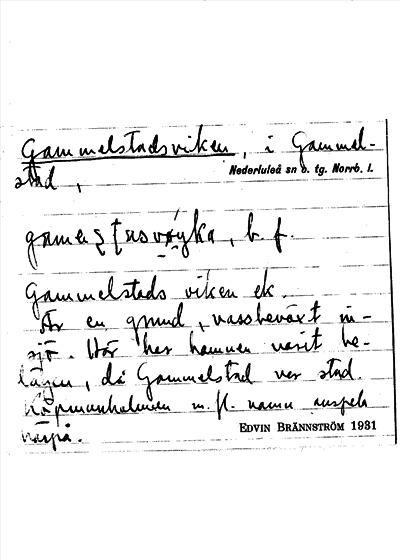 Gammelstadsviken, i Gammel-
stad,
Nederluleå sn o. tg. Norrb. l.
b. f.
Gammelstads viken ek.
Är en grund, vassbeväxt in-
sjö. Här har hamnen varit be-
lägen, då Gammelstad var stad.
Köpmanholmen m.fl. namn anspela
härpå.
EDVIN BRÄNNSTRÖM 1931